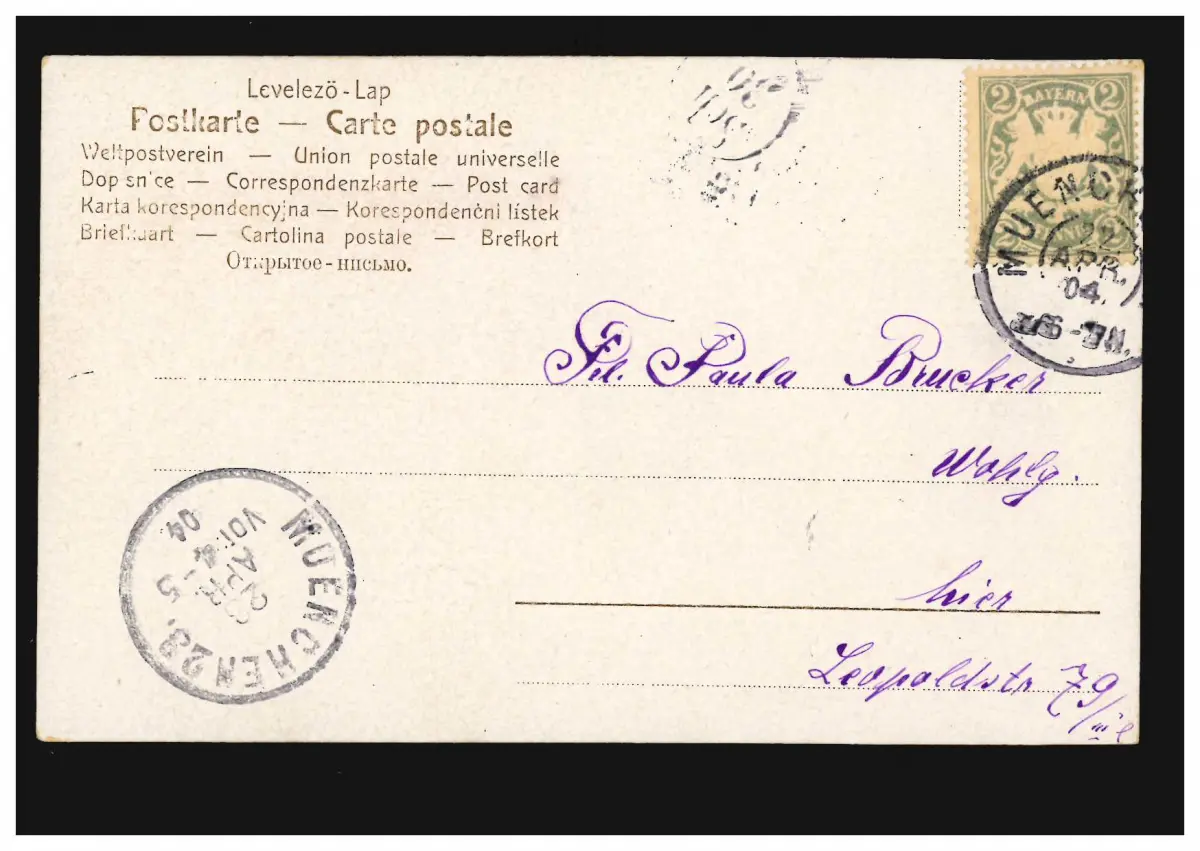 Levelező - Lap
Postkarte — Carte postale
Weltpostverein — Union postale universelle
Dop sn'ce — Correspondenzkarte — Post card
Karta korespondencyjna — Korespondenční lístek
Briefkaart — Cartolina postale — Brefkort
Открытое - письмо.
2 BAYERN 2
MUENCH
22
APR.
04.
Frl. Paula Brucker
Wohlg.
hier
Leopoldstr 79/III
MUENCHEN 23.
23
APR
VOR. 4-5
04